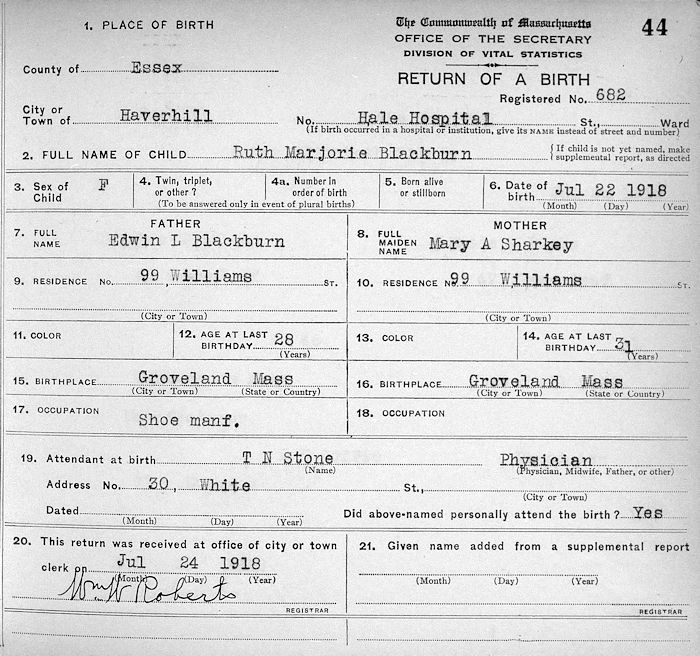 1. PLACE OF BIRTH
The Commonwealth of Massachusetts
44
OFFICE OF THE SECRETARY
DIVISION OF VITAL STATISTICS
County of Essex
RETURN OF A BIRTH
Registered No. 682
City or
Town of Haverhill No. Hale Hospital St., Ward
(If birth occurred in a hospital or institution, give its NAME instead of street and number)
2. FULL NAME OF CHILD Ruth Marjorie Blackburn { If child is not yet named, make
supplemental report, as directed
3. Sex of
Child F
4. Twin, triplet,
or other ?
4a. Number in
order of birth
(To be answered only in event of plural births)
5. Born alive
or stillborn
6. Date of
birth Jul 22 1918
(Month) (Day) (Year)
FATHER
7. FULL
NAME Edwin L Blackburn
MOTHER
8. FULL
MAIDEN
NAME Mary A Sharkey
9. RESIDENCE No. 99, Williams ST.
(City or Town)
10. RESIDENCE No. 99 Williams ST.
(City or Town)
11. COLOR
12. AGE AT LAST
BIRTHDAY 28
(Years)
13. COLOR
14. AGE AT LAST
BIRTHDAY 31
(Years)
15. BIRTHPLACE Groveland Mass
(City or Town) (State or Country)
16. BIRTHPLACE Groveland Mass
(City or Town) (State or Country)
17. OCCUPATION
Shoe manf.
18. OCCUPATION
19. Attendant at birth T N Stone Physician
(Name) (Physician, Midwife, Father, or other)
Address No. 30, White St.,
(City or Town)
Dated Did above-named personally attend the birth? Yes
(Month) (Day) (Year)
20. This return was received at office of city or town
clerk on Jul 24 1918
(Month) (Day) (Year)
Wm W Roberts
REGISTRAR
21. Given name added from a supplemental report
(Month) (Day) (Year)
REGISTRAR